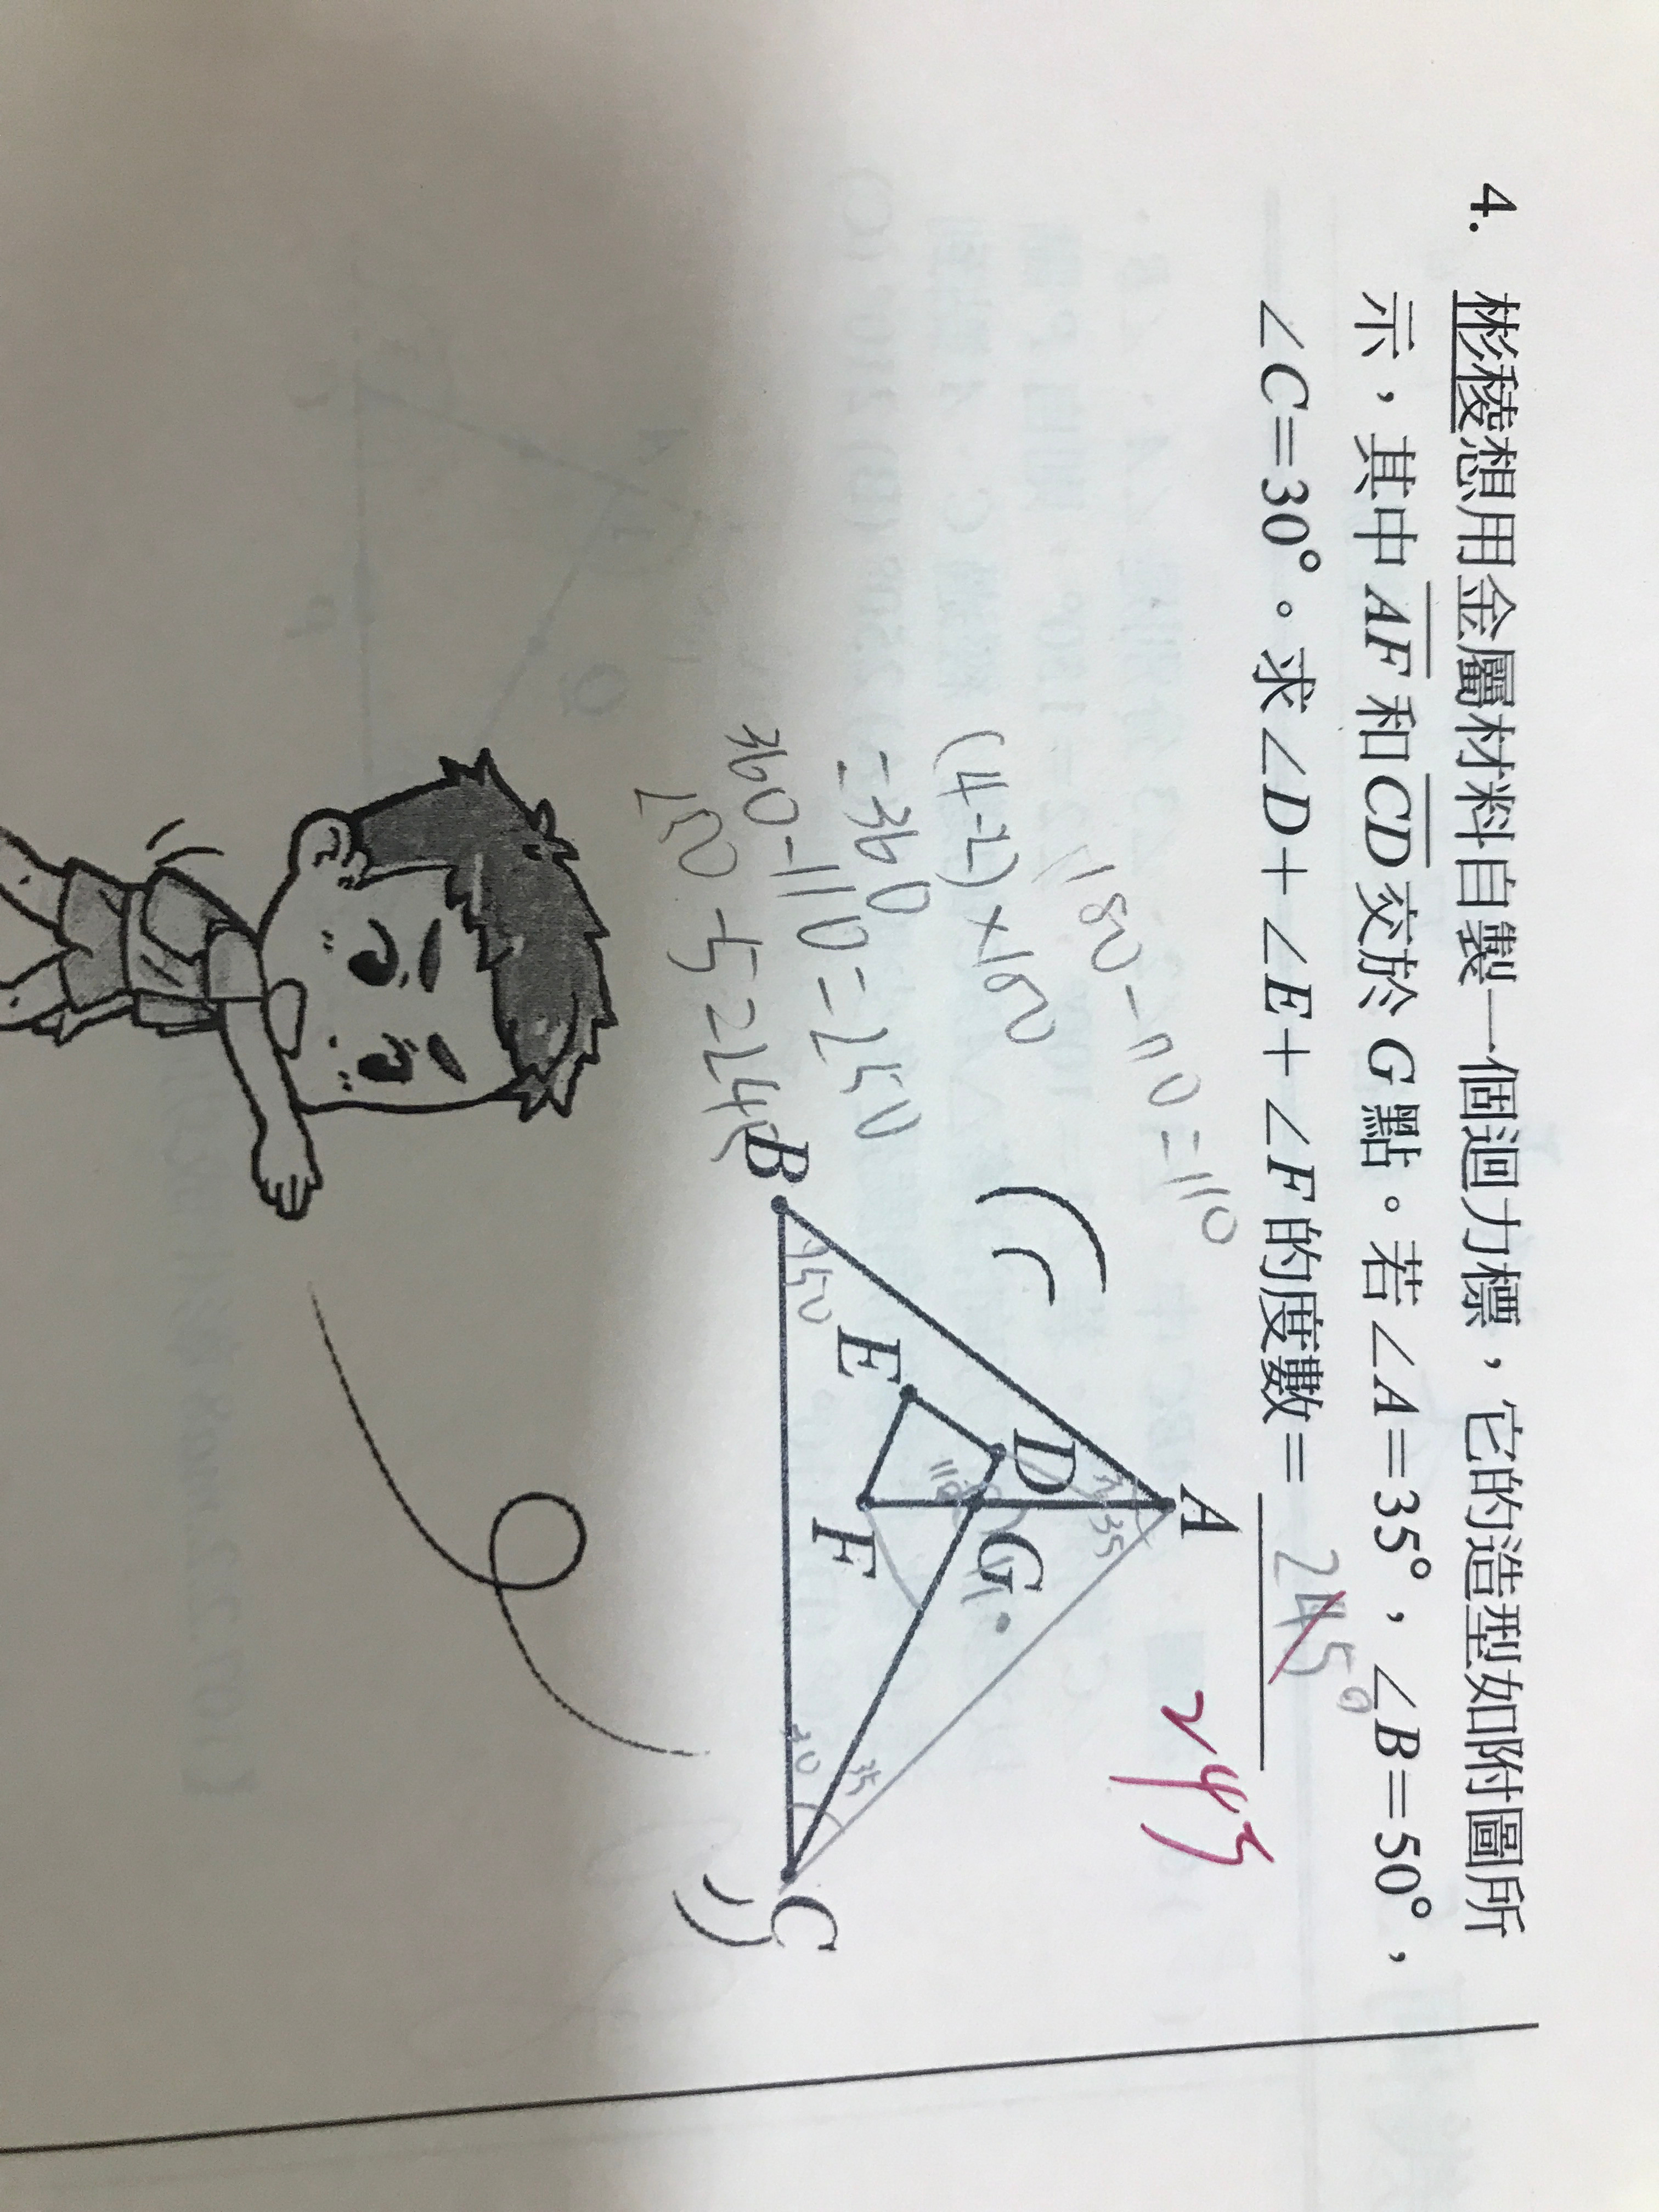 4. 彬稜想用金屬材料自製一個迴力標，它的造型如附圖所
示，其中AF和CD交於G點。若∠A=35°，∠B=50°，
∠C=30°。求∠D+∠E+∠F的度數=245°
245
180-70=110
(4-2)×180
=360
360-110=250
250-5=245
A
35
D
G
110
E
F
B
50
C
30
35